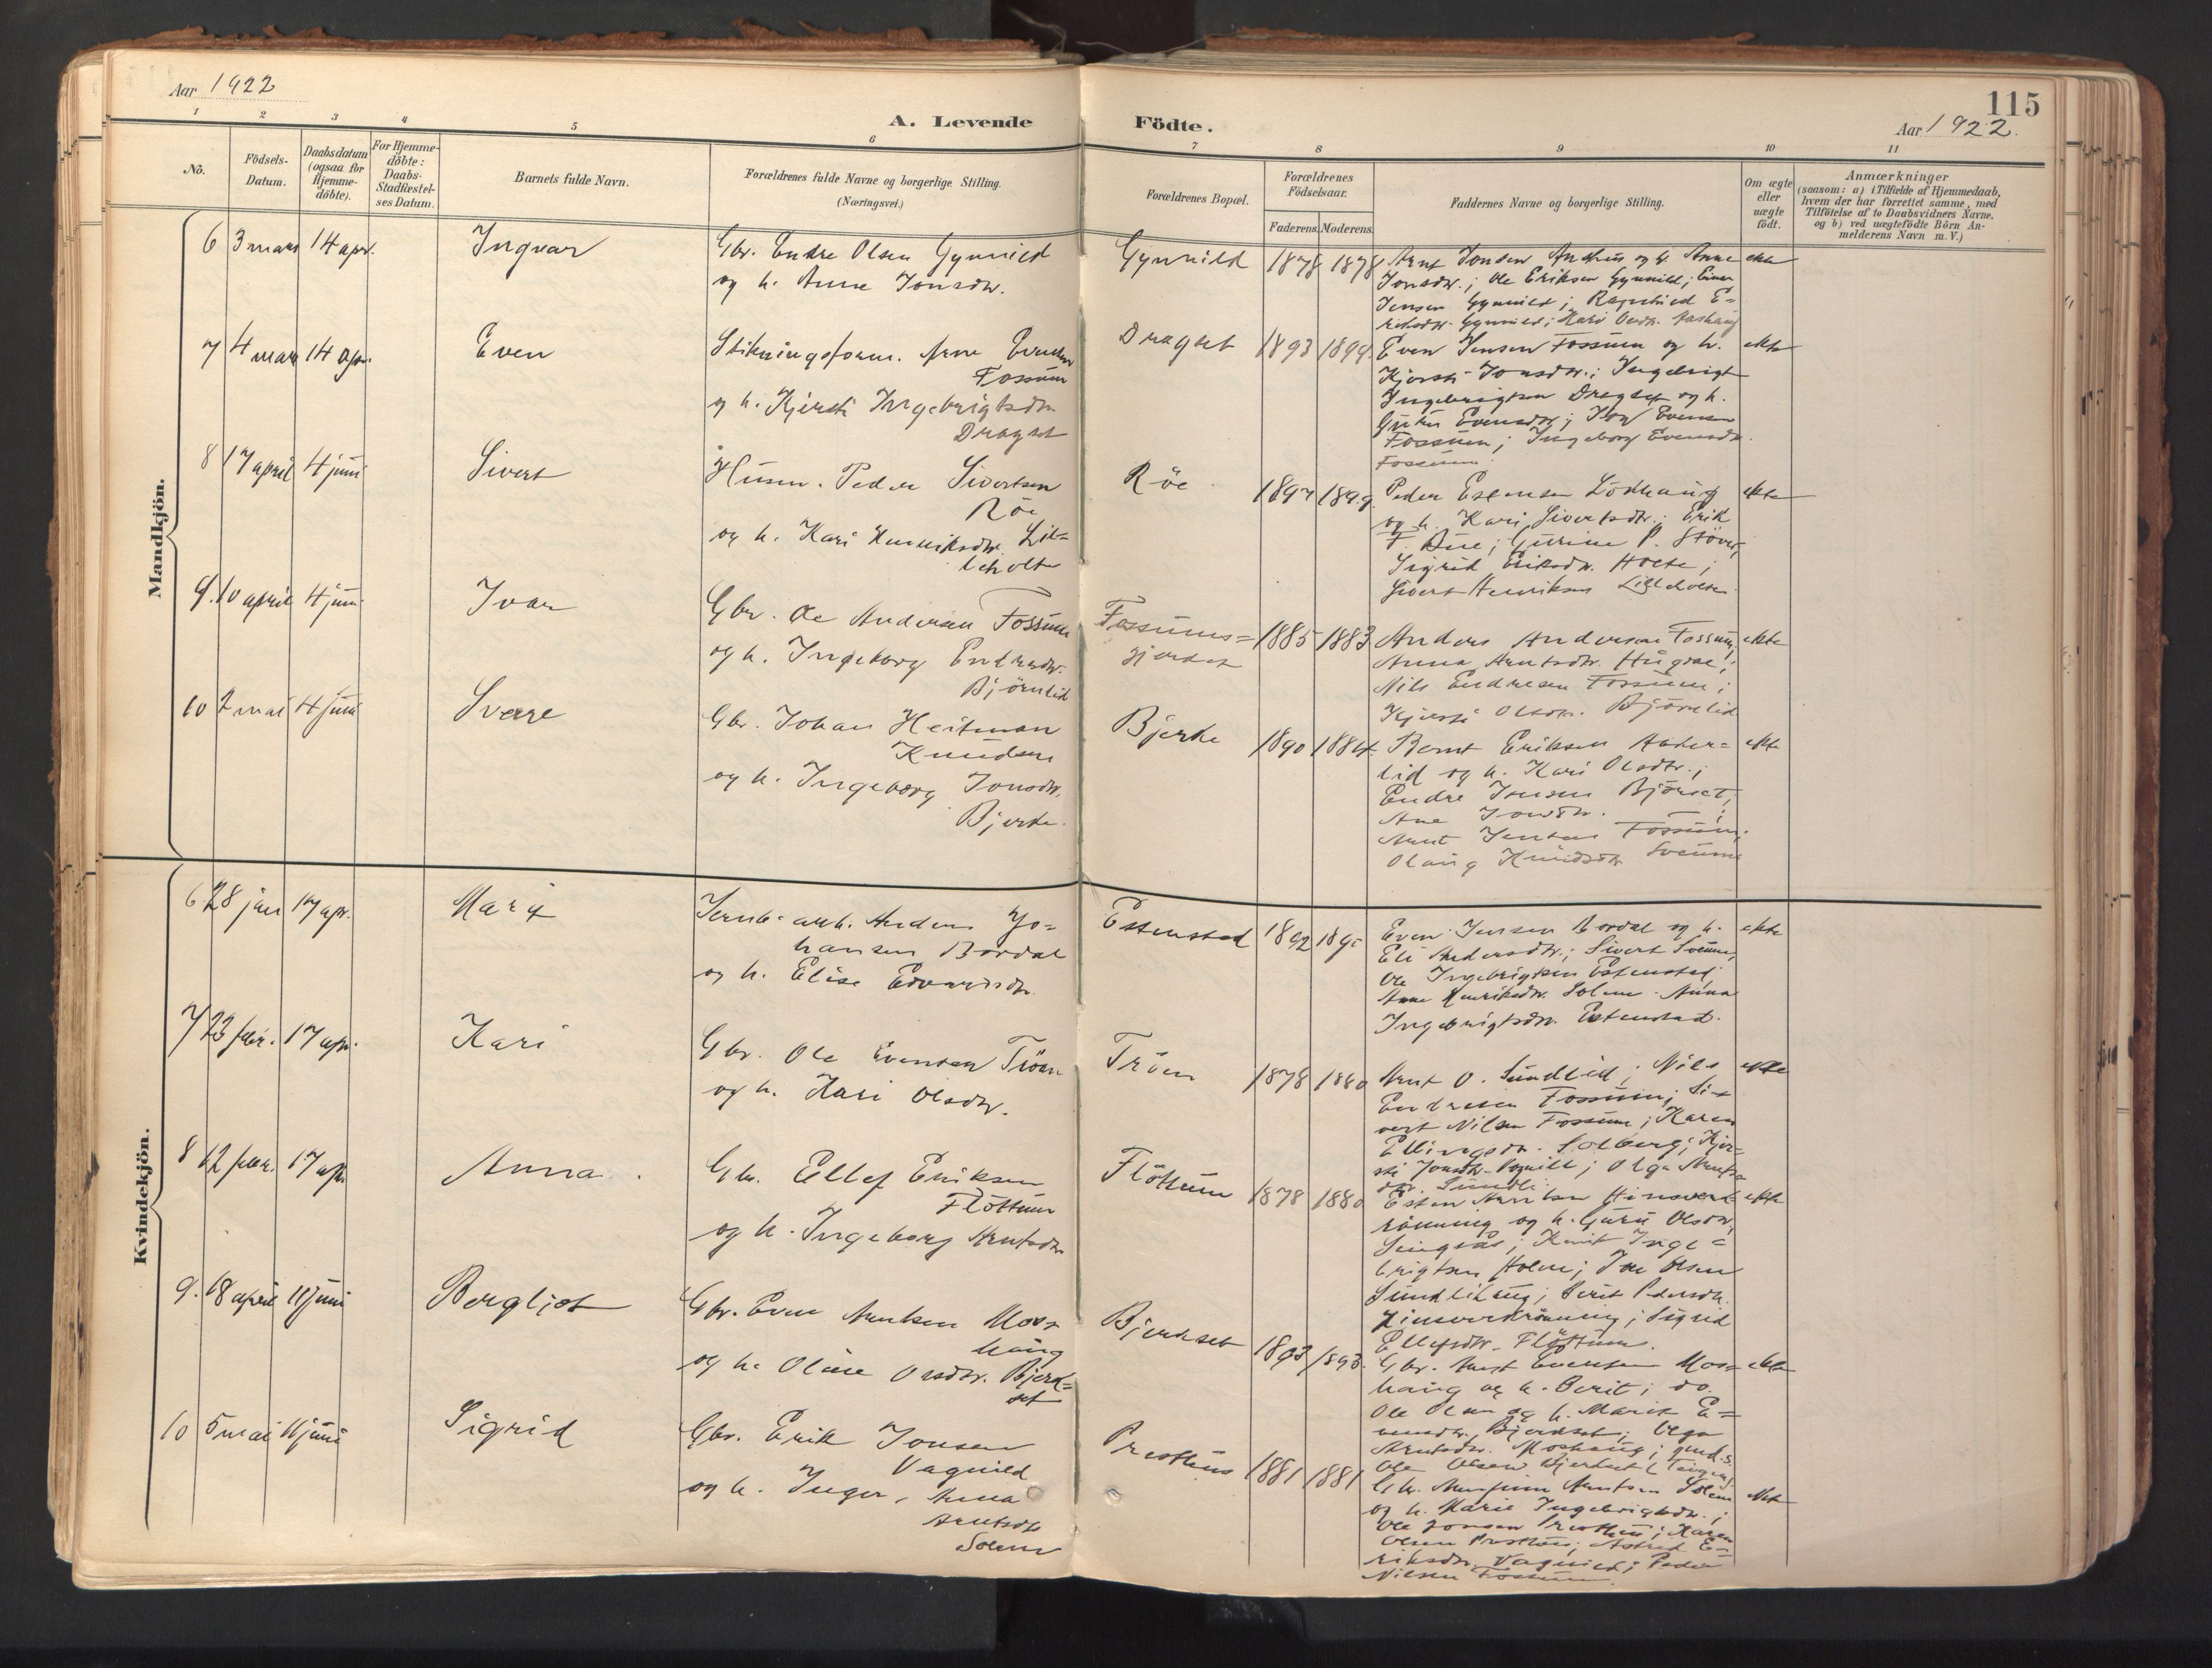 Aar 1922
A. Levende Födte.
115
Aar 1922.
1 2 3 4 5 6 7 8 9 10 11
No.
Födsels-
Datum.
Daabsdatum
(ogsaa for
Hjemme-
döbte).
For Hjemme-
döbte:
Daabs-
Stadfæstel-
ses Datum.
Barnets fulde Navn.
Forældrenes fulde Navne og borgerlige Stilling.
(Næringsvei.)
Forældrenes Bopæl.
Forældrenes
Födselsaar.
Faderens. Moderens.
Faddernes Navne og borgerlige Stilling.
Om ægte
eller
uægte
födt.
Anmærkninger
(saasom: a) i Tilfælde af Hjemmedaab,
hvem der har forrettet samme, med
Tilföielse af to Daabsvidners Navne,
og b) ved uægtefödte Börn An-
melderens Navn m. V.)
Mandkjön.
6 3 mars 14 apr. Ingvar
Gbr. Endre Olsen Gynnild
og h. Anne Jonsdtr.
Gynnild 1878 1878
Arnt Jonsen og h. Anne
Jonsdtr.; Ole Eriksen Gynnild; Einar
Jensen Gynnild; Ragnhild E=
riksdtr. Gynnild; Kari
ekte
7 4 mars 14 apr. Even
Stikningsform. Arne Evensen
Fossum
og h. Kjersti Ingebrigtsdtr.
Dragset
Dragset 1893 1899
Even Jensen Fossum og h.
Kjersti Jonsdtr.; Ingebrigt
Ingebrigtsen Dragset og h.
Guru Evensdtr.; Evensen
Fossum; Ingeborg Evensdtr.
Fossum.
ekte
8 17 april 4 juni Sivert
Husm. Peder Sivertsen
Röe
og h. Kari Henriksdtr. Lil=
leholte
Röe 1897 1899
Peder Estensen Lödhaug
og h. Kari Sivertsdtr.; Erik
P. Störe;
Sigrid Eriksdtr. Holte;
Sivert Henriksen Lilleholte.
ekte
9. 10 april 4 juni Ivar
Gbr. Ole Andersen Fossum
og h. Ingeborg Endresdtr.
Björnlid
Fossums=
gjerdet 1885 1883
Anders Andersen Fossum;
Anna Arntsdtr.
Nils Endresen Fossum;
Kjersti Olsdtr. Björnlid
ekte
10 2 mai 4 juni Sverre
Gbr. Johan Heitman
Knudsen
og h. Ingeborg Jonsdtr.
Bjerke.
Bjerke 1890 1884.
Bernt Eriksen
lid og h. Kari Olsdtr.;
Endre Jonsen Björset;
Ane Jonsdtr.
Arnt Jensen Fossum;
Olaug Knudsdtr. Sveum
ekte
Kvindekjön.
6 28 jan 17 apr. Mary
Jernb. arb. Anders Jo=
hansen Bordal
og h. Elise Edvardsdtr.
Estenstad 1892
Even Jensen Bordal og h.
Eli Andersdtr.; Sivert Sveum;
Ole Ingebrigtsen Estenstad;
Anne Henriksdtr. Solem. Anna
Ingebrigtsdtr. Estenstad.
ekte
7 23 febr. 17 apr. Kari
Gbr. Ole Evensen Tröen
og h. Kari Olsdtr.
Tröen 1878 1880
Arnt O. Sundlid; Nils
Endresen Fossum; Si=
vert Nilsen Fossum; Karen
Ellingsdtr. Solberg; Kjer=
sti Jonsdtr. Vagnild; Olga Arnts
dtr. Sundli.
ekte
8 12 febr. 17 apr. Anna.
Gbr. Ellef Eriksen
Flöttum
og h. Ingeborg Arntsdtr.
Flöttum 1878 1880
Esten Arntsen Hinsverk
rönning og h. Guru Olsdtr.
Singsås; Knut Inge=
brigtsen Holm; Jon Olsen
Sundlihaug; Berit Pedersdtr.
Hinsverkrönning; Sigrid
Ellefsdtr. Flöttum.
ekte
9. 18 april 11 juni Bergljot
Gbr. Even Arntsen Mos=
haug
og h. Oline Olsdtr. Bjerk=
set
Bjerkset 1893 1893.
Gbr. Arnt Evensen Mos=
haug og h. Berit; do.
Ole Olsen og h. Marit E=
vensdtr. Bjerkset; Olga
Arntsdtr. Moshaug; gmd.s.
Ole Olsen Bjerkset
ekte
10 5 mai 11 juni Sigrid
Gbr. Erik Jonsen
Vagnild
og h. Inger Anna
Arntsdtr.
Solem
Presthus 1881 1881
Gbr. Arntsen Solem
og h. Marie Ingebrigtsdtr.;
Ole Jonsen Presthus; Karen
Olsen Presthus; Astrid E=
riksdtr. Vagnild; Peder
Nilsen Fossum.
ekte